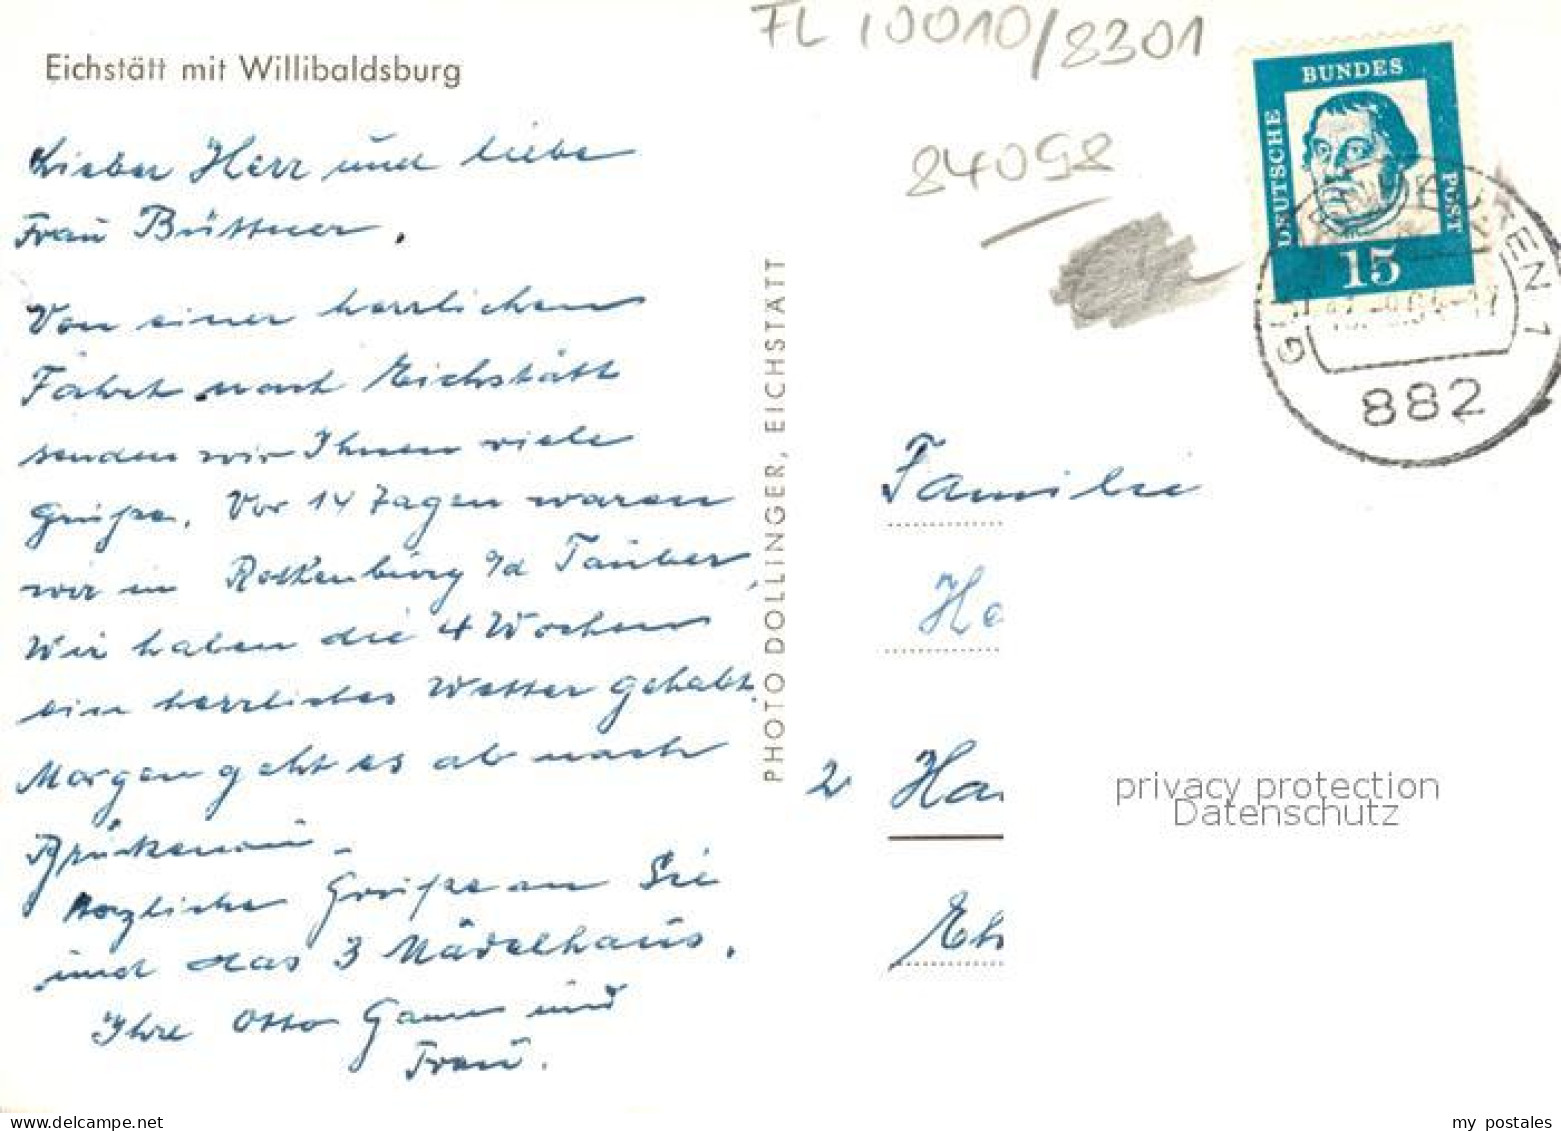 FL 10010/8301
Eichstätt mit Willibaldsburg
84098
Lieber Herr und liebe
Frau Büttner,
Von einer herrlichen
Fahrt nach Eichstätt
senden wir Ihnen viele
Grüße. Vor 14 Tagen waren
wir in Rothenburg o/d Tauber,
Wir haben die 4 Wochen
ein herrliches Wetter gehabt.
Morgen geht es ab nach
Brückenau.
Herzliche Grüße an Sie
und das 3 Mädelhaus.
Ihre Otto Gamm und
Frau.
PHOTO DOLLINGER, EICHSTÄTT
DEUTSCHE BUNDES POST
15
882
Familie
Ha
2 Ha
privacy protection
Datenschutz
my postales